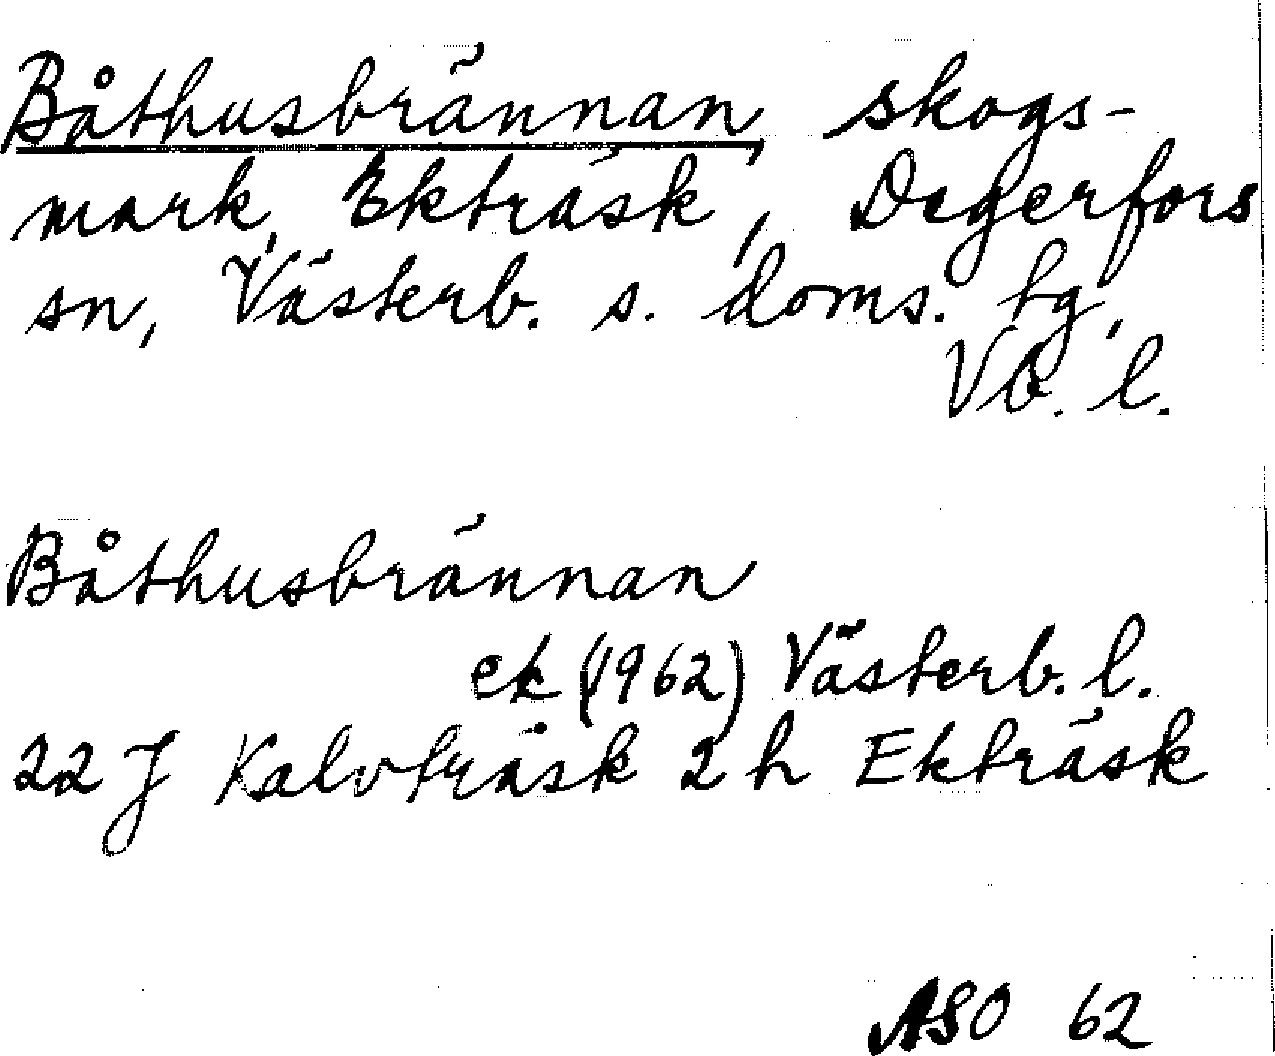 Båthusbrännan, skogs-
mark, Ekträsk, Degerfors
sn, Västerb. s. doms. tg,
Vb. l.
Båthusbrännan
ek (1962) Västerb. l.
22 J Kalvträsk 2 h Ekträsk
ASO 62